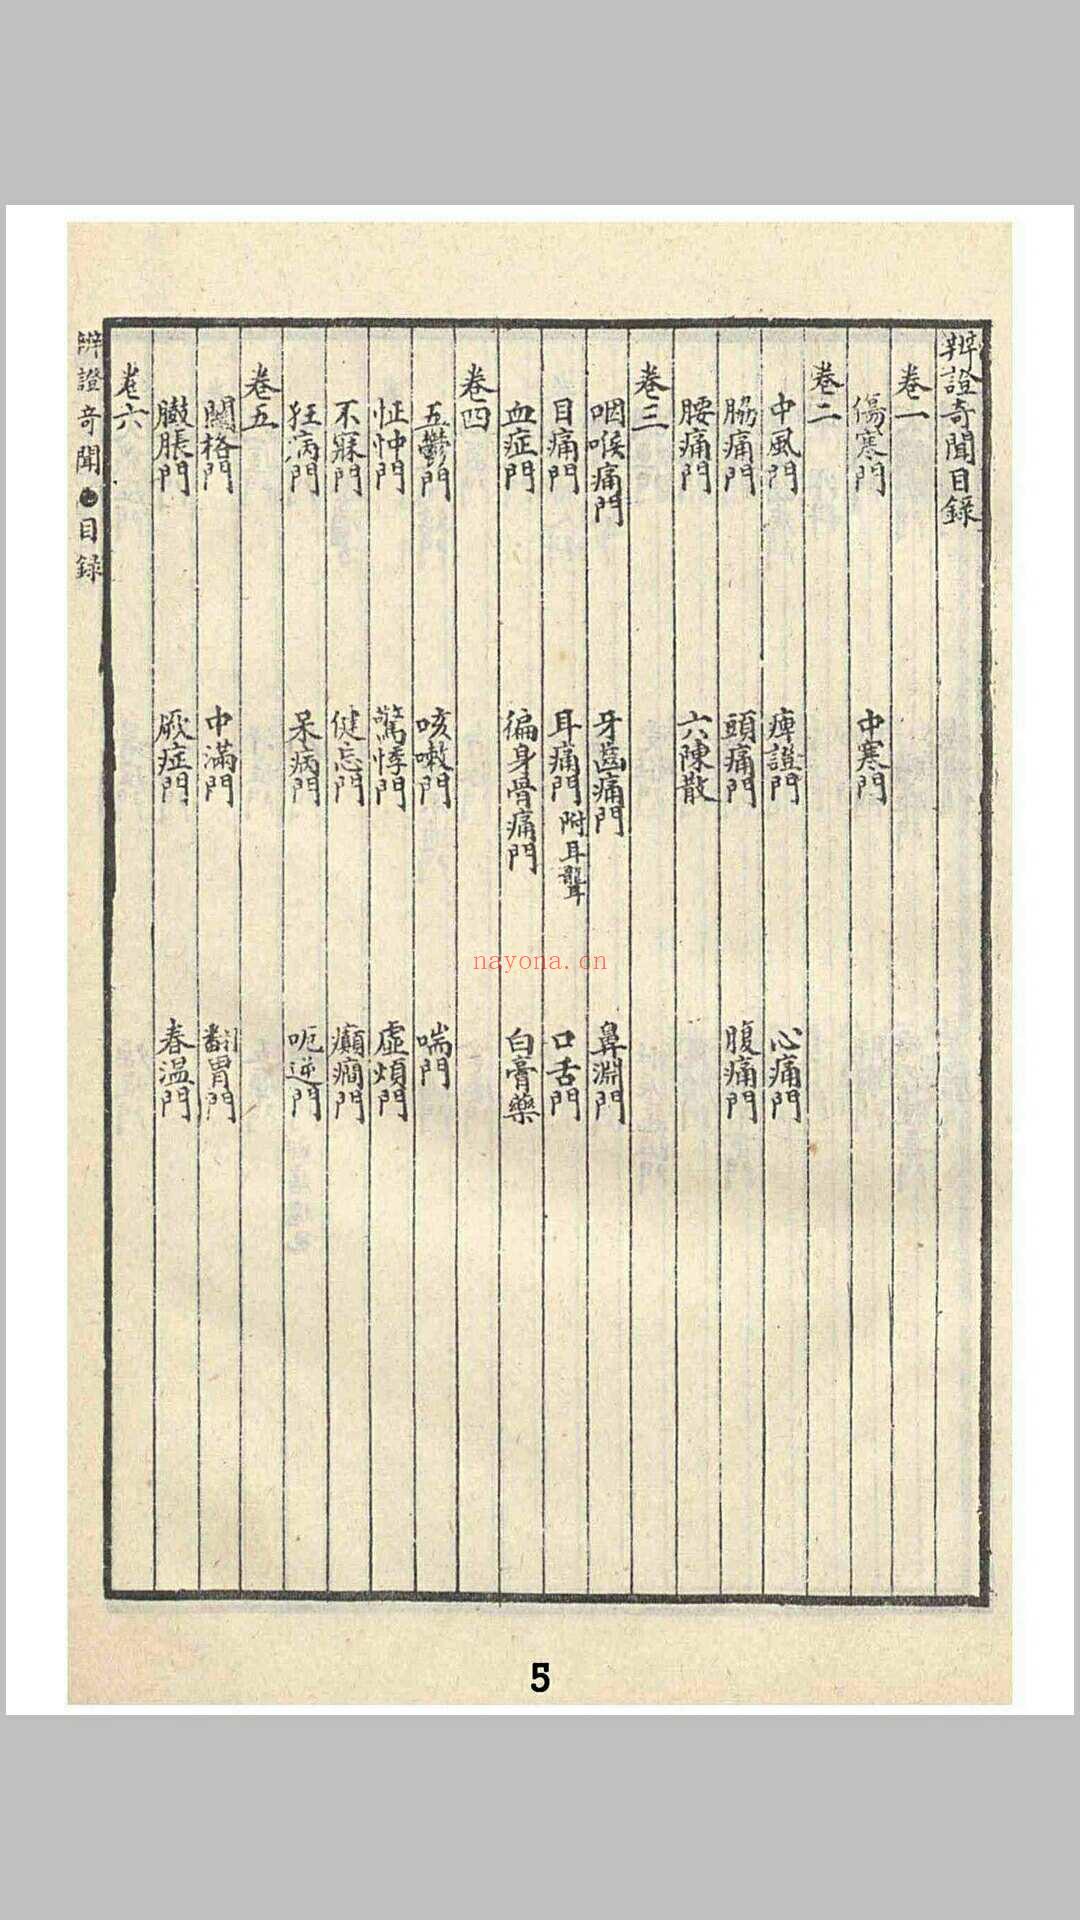 辨證奇聞目録
卷一
傷寒門 中寒門
卷二
中風門 痺證門 心痛門
脇痛門 頭痛門 腹痛門
腰痛門 六陳散
卷三
咽喉痛門 牙齒痛門 鼻淵門
目痛門 耳痛門附耳聾 口舌門
血症門 徧身骨痛門 白膏藥
卷四
五鬱門 咳嗽門 喘門
怔忡門 驚悸門 虛煩門
不寐門 健忘門 癲癇門
狂病門 呆病門 呃逆門
卷五
關格門 中滿門 翻胃門
臌脹門 厥症門 春温門
卷六
辨證奇聞●目録
nayona.cn
5